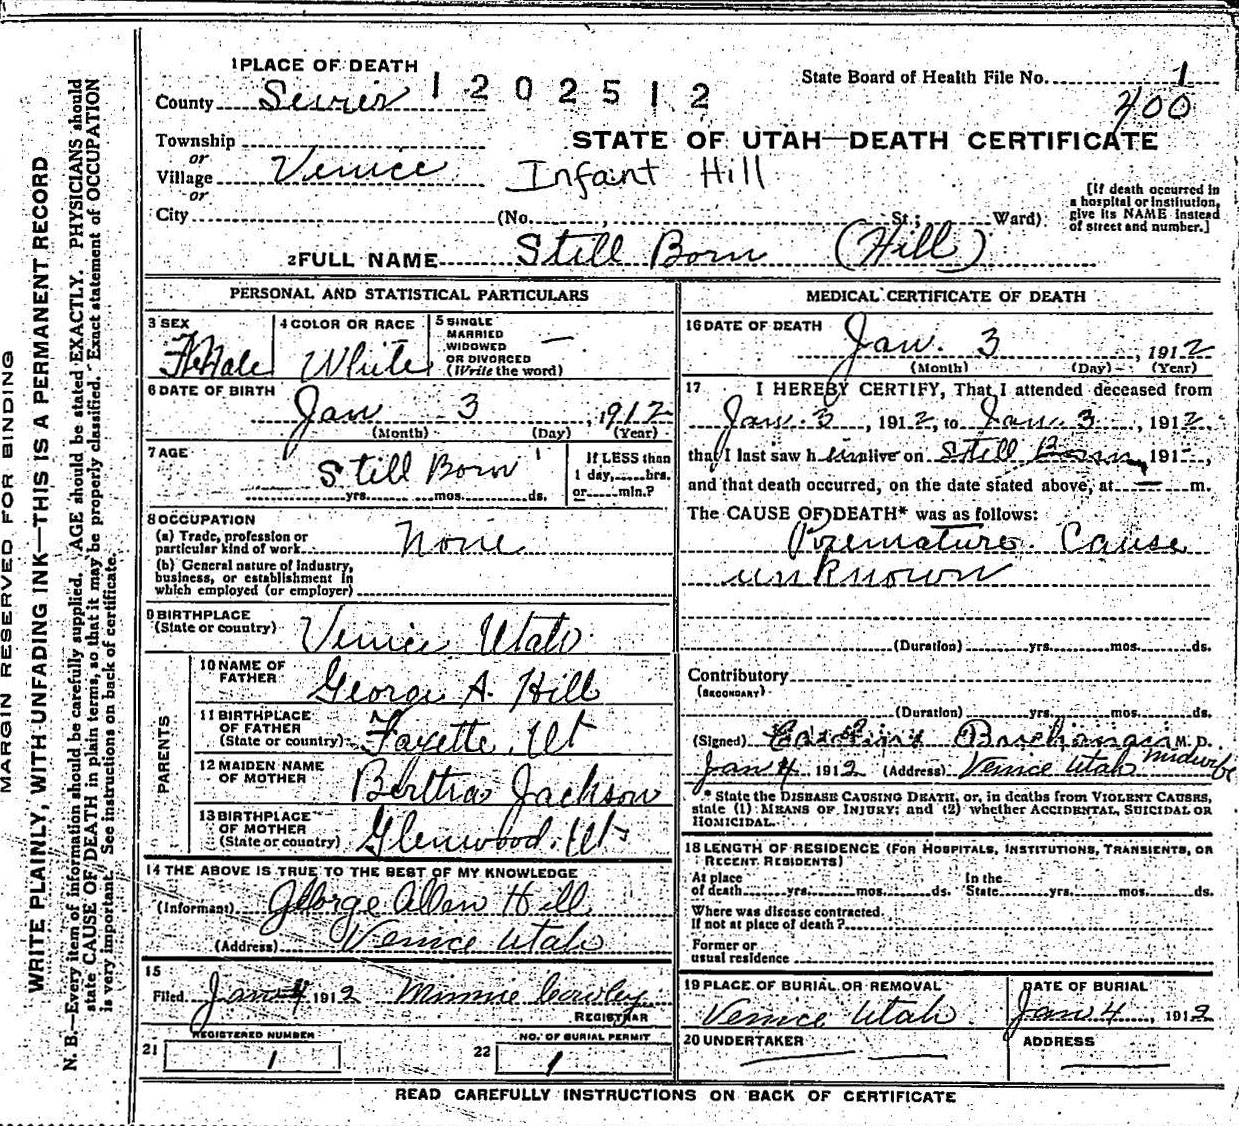 MARGIN RESERVED FOR BINDING
WRITE PLAINLY, WITH UNFADING INK—THIS IS A PERMANENT RECORD
N. B.—Every item of information should be carefully supplied. AGE should be stated EXACTLY. PHYSICIANS should
state CAUSE OF DEATH in plain terms, so that it may be properly classified. Exact statement of OCCUPATION
is very important. See instructions on back of certificate.
1 PLACE OF DEATH
State Board of Health File No. 1
County Sevier 1202512
400
Township
STATE OF UTAH—DEATH CERTIFICATE
or
Village Venice Infant Hill
or
City (No. , St.; Ward)
[If death occurred in
a hospital or institution,
give its NAME instead
of street and number.]
2 FULL NAME Still Born (Hill)
PERSONAL AND STATISTICAL PARTICULARS
3 SEX
FeMale
4 COLOR OR RACE
White
5 SINGLE
MARRIED
WIDOWED
OR DIVORCED
(Write the word)
—
6 DATE OF BIRTH
Jan 3, 1912
(Month) (Day) (Year)
7 AGE
Still Born
yrs. mos. ds.
If LESS than
1 day, hrs.
or min.?
8 OCCUPATION
(a) Trade, profession or
particular kind of work None
(b) General nature of industry,
business, or establishment in
which employed (or employer)
9 BIRTHPLACE
(State or country) Venice Utah
PARENTS
10 NAME OF
FATHER George A. Hill
11 BIRTHPLACE
OF FATHER
(State or country) Fayette, Ut
12 MAIDEN NAME
OF MOTHER Bertha Jackson
13 BIRTHPLACE
OF MOTHER
(State or country) Glenwood, Ut
14 THE ABOVE IS TRUE TO THE BEST OF MY KNOWLEDGE
(Informant) George Allen Hill
(Address) Venice Utah
15
Filed Jan 4 1912 Minnie Cowley
REGISTRAR
REGISTERED NUMBER
21 1
NO. OF BURIAL PERMIT
22 1
MEDICAL CERTIFICATE OF DEATH
16 DATE OF DEATH
Jan. 3, 1912
(Month) (Day) (Year)
17 I HEREBY CERTIFY, That I attended deceased from
Jan. 3, 1912, to Jan. 3, 1912.
that I last saw h alive on Still Born, 191-,
and that death occurred, on the date stated above, at — m.
The CAUSE OF DEATH* was as follows:
Premature. Cause
unknown
(Duration) yrs. mos. ds.
Contributory
(SECONDARY)
(Duration) yrs. mos. ds.
(Signed) Buchanan M. D.
Midwife
Jan 4 1912 (Address) Venice Utah
* State the DISEASE CAUSING DEATH, or, in deaths from VIOLENT CAUSES,
state (1) MEANS OF INJURY; and (2) whether ACCIDENTAL, SUICIDAL OR
HOMICIDAL.
18 LENGTH OF RESIDENCE (FOR HOSPITALS, INSTITUTIONS, TRANSIENTS, OR
RECENT RESIDENTS)
At place
of death yrs. mos. ds.
In the
State yrs. mos. ds.
Where was disease contracted.
If not at place of death?
Former or
usual residence
19 PLACE OF BURIAL OR REMOVAL
Venice Utah
DATE OF BURIAL
Jan 4, 1912
20 UNDERTAKER
ADDRESS
READ CAREFULLY INSTRUCTIONS ON BACK OF CERTIFICATE